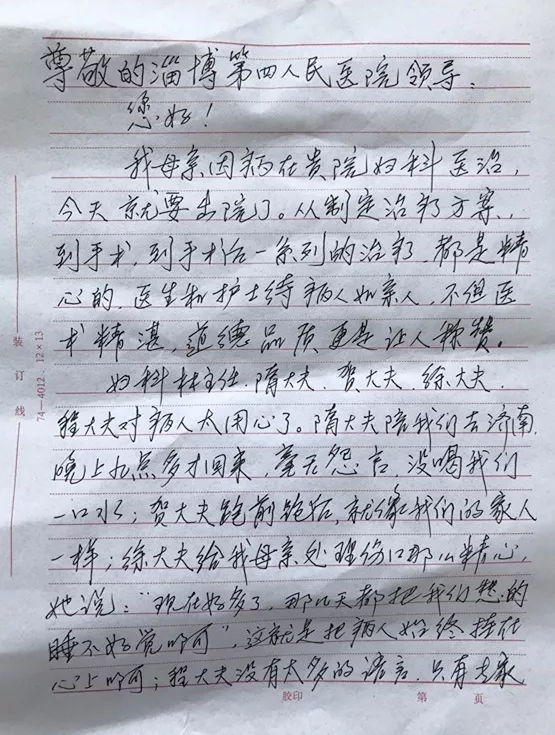 尊敬的淄博第四人民医院领导:
您好!
我母亲因病在贵院妇科医治,
今天就要出院了。从制定治疗方案,
到手术,到手术后一系列的治疗,都是精
心的,医生和护士待病人如亲人,不但医
术精湛,道德品质更是让人称赞。
妇科杜主任、隋大夫、贺大夫、徐大夫、
程大夫对病人太用心了。隋大夫陪我们去济南,
晚上九点多才回来,毫无怨言,没喝我们
一口水;贺大夫跑前跑后,就像我们的家人
一样;徐大夫给我母亲处理伤口那么精心,
她说:“现在好多了,那几天都把我们愁的
睡不好觉啊”,这就是把病人始终挂在
心上啊;程大夫没有太多的语言,只有
装订线
74—4012.12×13
胶印
第 页